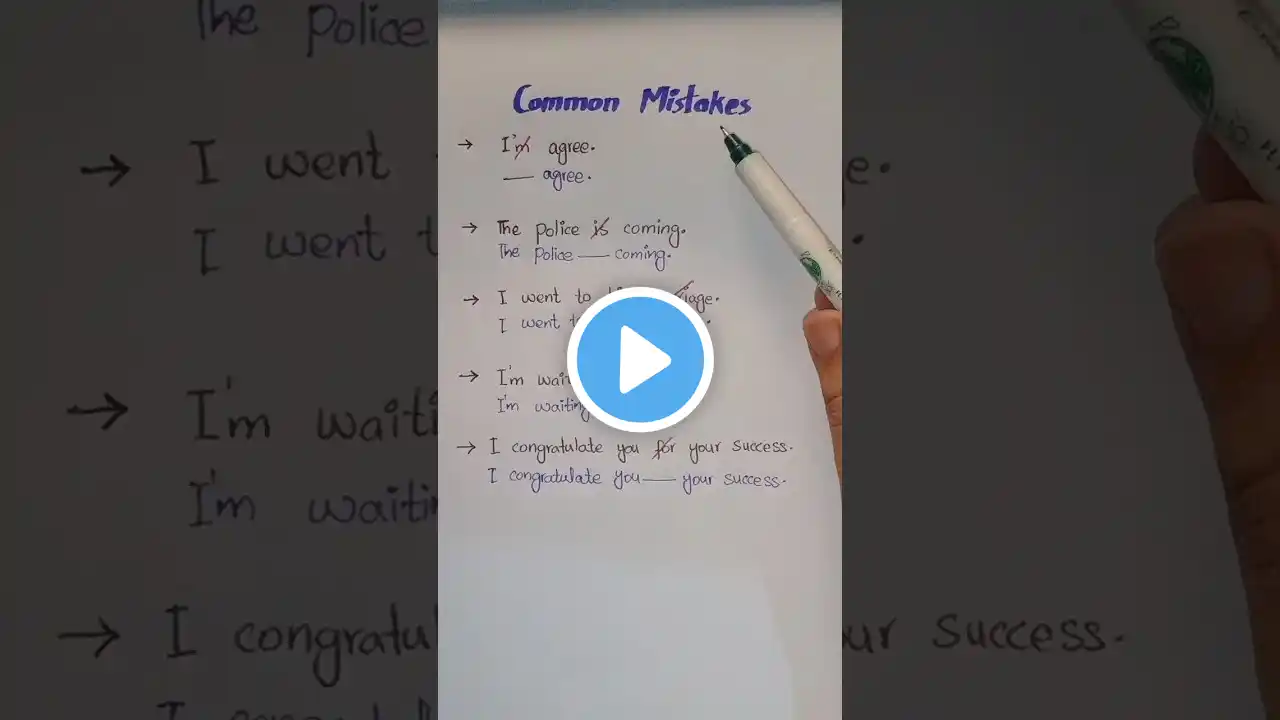 Common Mistakes
→ I'm agree.
— agree.
→ The police is coming.
The police — coming.
→ I went to
I went
→ I'm
I'm waiting
→ I congratulate you for your success.
I congratulate you — your success.